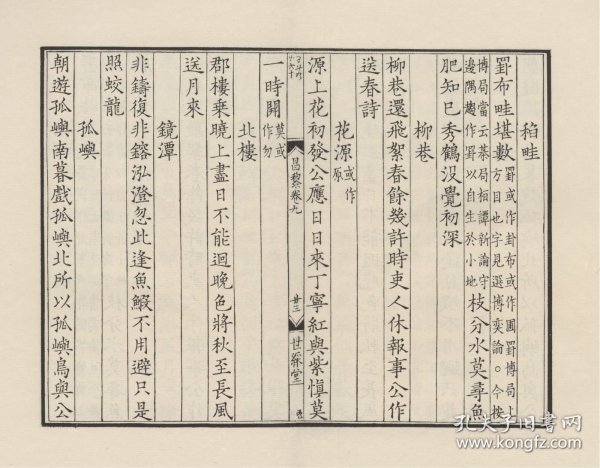 稻畦
罫布畦堪數罫或作卦布或作圃罫博局上
方目也字見選博奕論○今按
博局當云棊局桓譚新論守
邊隅趨作罫以自生於小地枝分水莫尋魚
肥知已秀鶴沒覺初深
柳巷
柳巷還飛絮春餘幾許時吏人休報事公作
送春詩
花源或作原
源上花初發公應日日來丁寧紅與紫愼莫
昌黎卷九
廿三
世綵堂
一時開莫或作勿
北樓
郡樓乗曉上盡日不能迴晚色將秋至長風
送月來
鏡潭
非鑄復非鎔泓澄忽此逢魚鰕不用避只是
照蛟龍
孤嶼
朝遊孤嶼南暮戲孤嶼北所以孤嶼鳥與公
孔夫子旧书网
www.kongfz.com